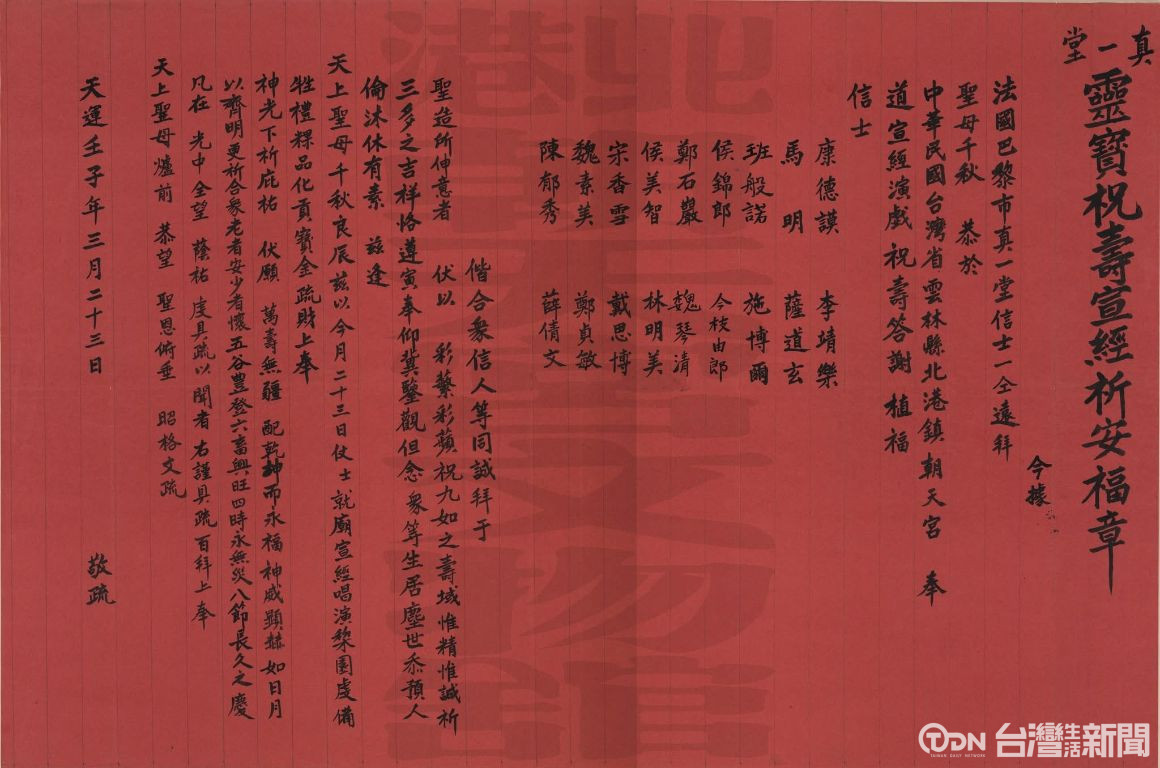 真一堂
靈寶祝壽宣經祈安福章
今據
法國巴黎市真一堂信士一仝遠拜
聖母千秋 恭於
中華民國台灣省雲林縣北港鎮朝天宮 奉
道宣經演戲祝壽答謝植福
信士
康德謨 李靖樂
馬明 薩道玄
班般諾 施博爾
侯錦郎 今枝由郎
鄭石巖 魏琴清
侯美智 林明美
宋香雪 戴思博
魏素美 鄭貞敏
陳郁秀 薛倩文
偕合衆信人等同誠拜于
聖造所伸意者 伏以 彩蘩彩蘋祝九如之壽域惟精惟誠祈
三多之吉祥恪遵寅奉仰冀鑒觀但念衆等生居塵世忝預人
倫沐休有素 兹逢
天上聖母千秋良辰兹以今月二十三日仗士就廟宣經唱演棃園虔備
牲禮粿品化貢寶金疏財上奉
神光下祈庇祐 伏願 萬壽無疆 配乾坤而永福神威顯赫如日月
以齊明更祈合衆老者安少者懷五谷豊登六畜興旺四時永無災八節長久之慶
凡在 光中全望 蔭祐虔具疏以聞者右謹具疏百拜上奉
天上聖母爐前 恭望 聖恩俯垂 昭格文疏
天運壬子年三月二十三日 敬疏
北港朝天宮文物館
TDN 台灣生活新聞
TAIWAN DAILY NETWORK